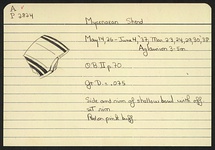 A
P 2824
Mycenaean Sherd
May 14, 26 - June 4, '37, Mar. 23, 24, 29, 30, '38
Aglaurion 3:5m
O.B. II p. 70
Gr. D. = .075
Side and rim of shallow bowl with off
set rim.
pink buff